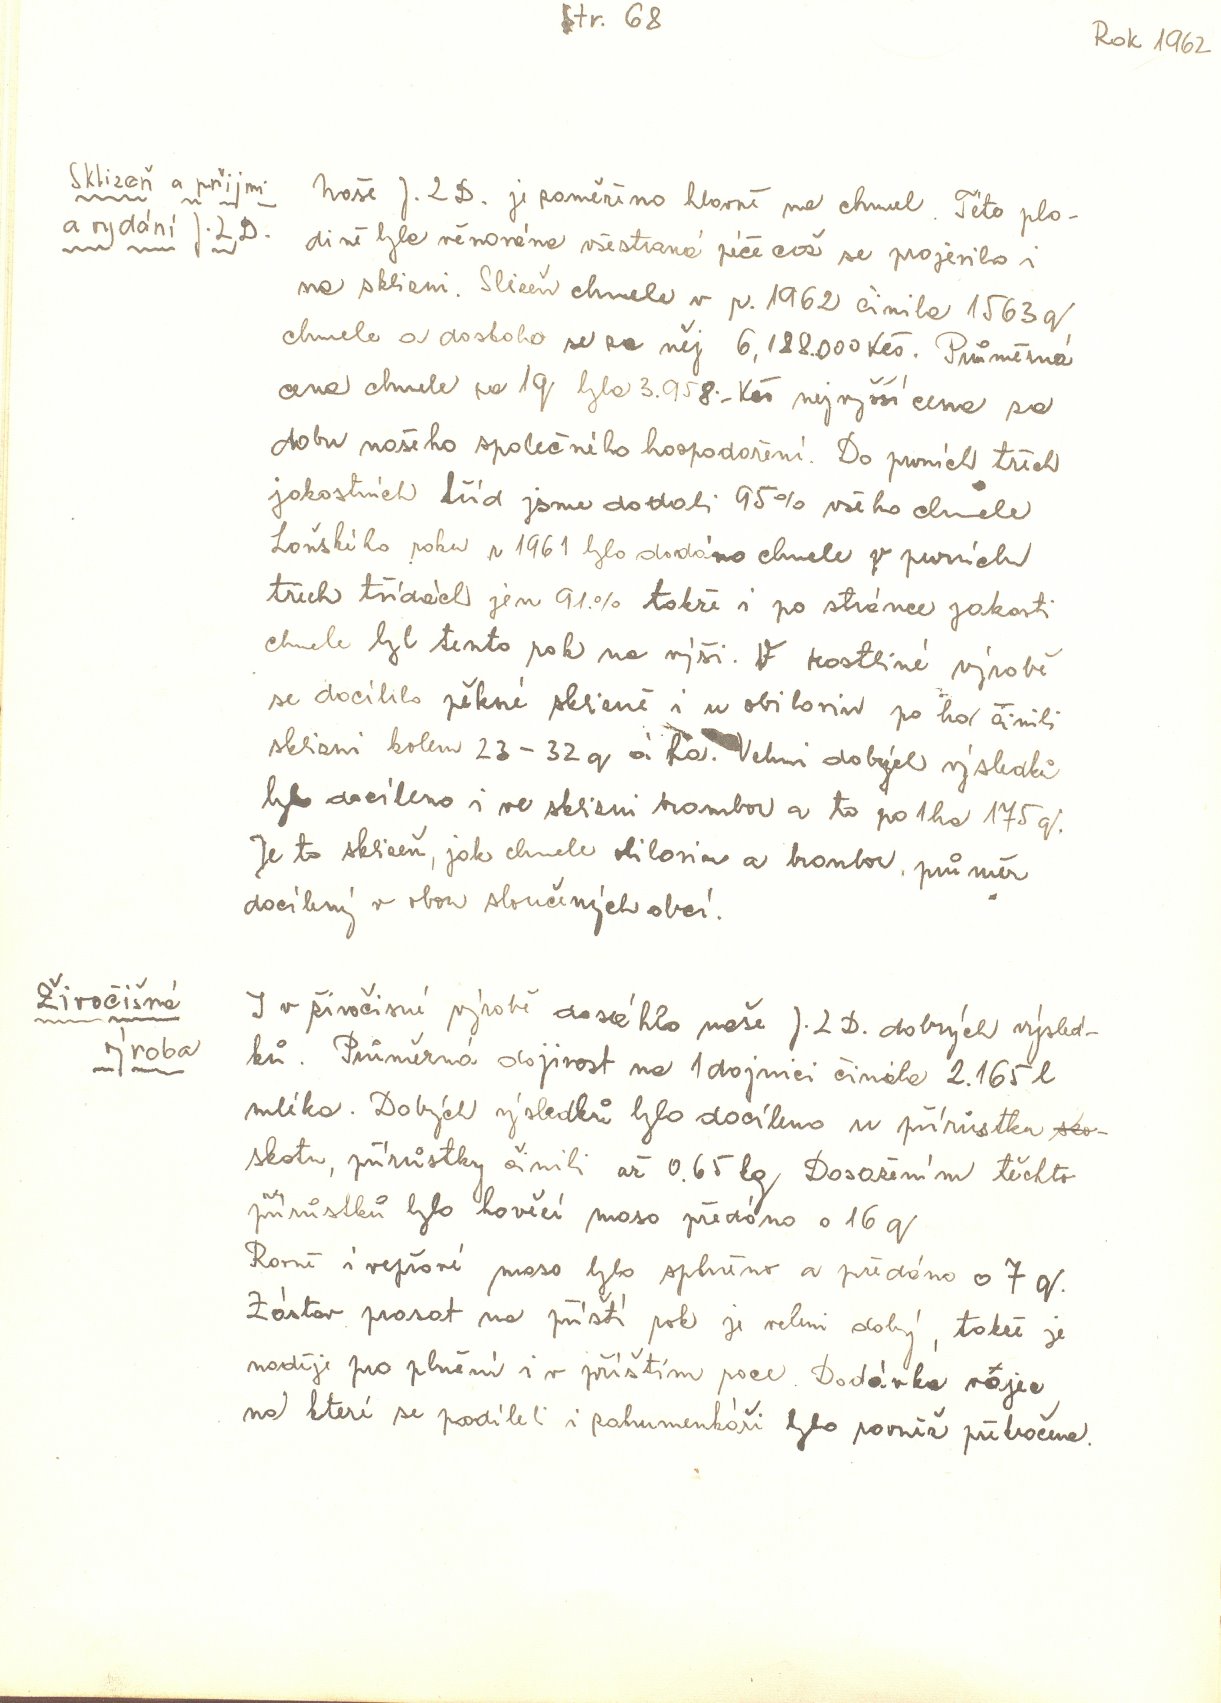 Str. 68
Rok 1962
Sklizeň a příjmi
a vydání J.Z.D.
Naše J.Z.D. je zaměřeno hlavně na chmel. Této plo-
dině byla věnována všestraná péče což se projevilo i
na sklizni. Slizeň chmele v r. 1962 činila 1563 q
chmele a dostoho se za něj 6,188.000 Kčs. Průměrná
cena chmele za 1q byla 3.958.- Kčs nejvyšší cena za
dobu našeho společného hospodaření. Do prvních třech
jakostních tříd jsme dodali 95% všeho chmele
Loňského roku r 1961 bylo dodáno chmele v prvních
třech třídách jen 91.% takže i po stránce jakosti
chmele byl tento rok na výši. V rostliné výrobě
se docílilo pěkné sklizně i u obilovin po ha činili
sklizni kolem 23-32 q á ha. Velmi dobých výsledků
bylo docíleno i ve sklizni brambor a to po 1ha 175 q.
Je to sklizeň, jak chmele obilovin a brambor, průměr
docílený v obou sloučených obcí.
Živočišná
výroba
I v živočisné výrobě dosáhlo naše J.Z.D. dobrých výsled-
ků. Průměrná dojivost na 1 dojnici činila 2.165 l
mléka. Dobých výsledků bylo docíleno u přírůstku sko-
skotu, přírůstky činili až 0.65 kg Dosažením těchto
přírůstků bylo hovězí maso předáno o 16 q
Rovně i vepřové maso bylo splněno a předáno o 7 q.
Zástav prasat na příští rok je velmi dobrý, takže je
naděje pro plnění i v příštím roce. Dodávka vajec
na které se podíleli i záhumenkáři byla rovněž překročena.